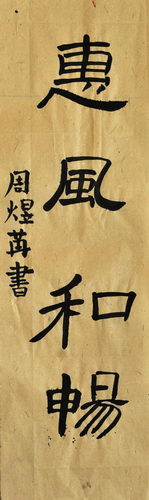 惠風和暢
周煜苒書